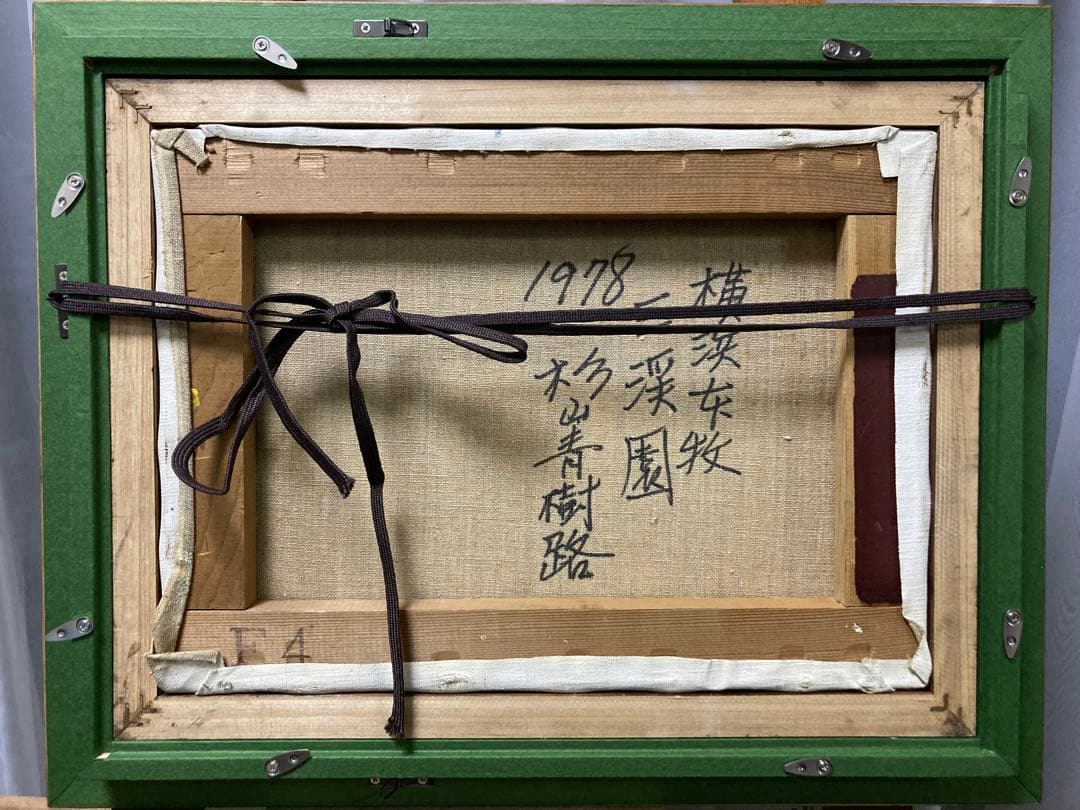 横浜本牧
三渓園
1978
杉山青樹路
F4